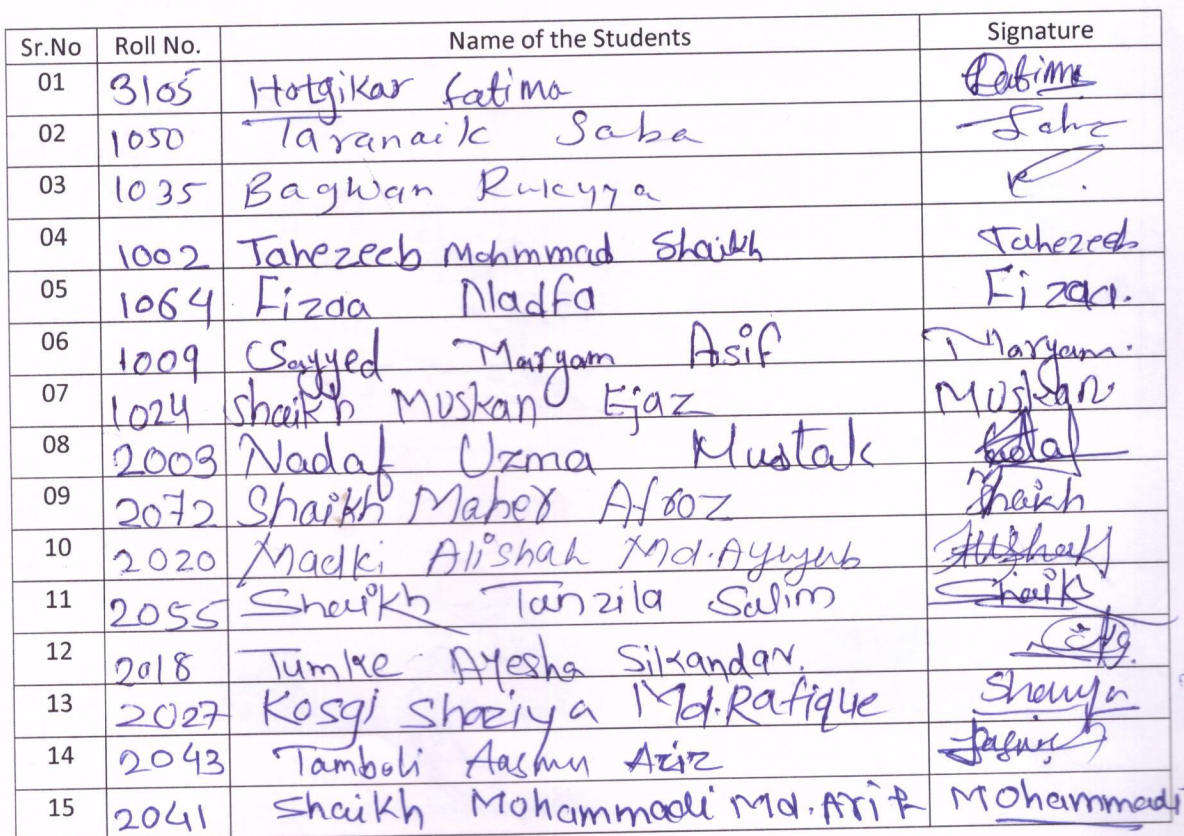 Sr.No Roll No. Name of the Students Signature
01 3105 Hotgikar Fatima Fatima
02 1050 Taranaik Saba Saba
03 1035 Bagwan Rukayya R.
04 1002 Tahezeeb Mohmmad Shaikh Tahezeeb
05 1064 Fizaa Nadfa Fizaa.
06 1009 Sayyed Maryam Asif Maryam.
07 1024 Shaikh Muskan Ejaz Muskan
08 2003 Nadaf Uzma Mustak
09 2072 Shaikh Maher Afroz Shaikh
10 2020 Madki Alishah Md.Ayuyub
11 2055 Shaikh Tanzila Salim Shaikh
12 2018 Tumke Ayesha Sikandar.
13 2027 Kosgi Shaziya Md.Rafique
14 2043 Tamboli Aasmu Aziz
15 2041 Shaikh Mohammadi Md.Arif Mohammadi